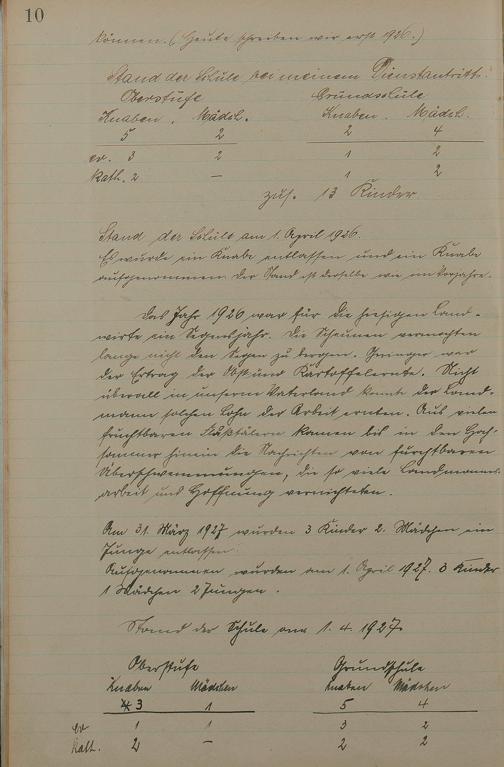 10
können. (Heute schreiben wir erst 1926.)
Stand der Schule bei meinem Dienstantritt.
Oberstufe Grundschule
Knaben. Mädch. Knaben. Mädch.
5 2 2 4
ev. 3 2 1 2
kath. 2 — 1 2
zus. 13 Kinder
Stand der Schule am 1. April 1926.
Es wurde ein Knabe entlassen und ein Knabe
aufgenommen. Der Stand ist derselbe wie im Vorjahre.
Das Jahr 1926 war für die hiesigen Land-
wirte ein Segensjahr. Die Scheunen vermochten
lange nicht den Segen zu bergen. Geringer war
der Ertrag der Obst und Kartoffelernte. Nicht
überall in unserm Vaterland konnte der Land-
mann solchen Lohn der Arbeit ernten. Aus vielen
fruchtbaren Flußtälern kamen bis in den Hoch-
sommer hinein die Nachrichten von furchtbaren
Überschwemmungen, die so viele Landmanns-
arbeit und Hoffnung vernichteten.
Am 31. März 1927 wurden 3 Kinder 2. Mädchen ein
Junge entlassen.
Aufgenommen wurden am 1. April 1927. 3 Kinder
1 Mädchen 2 Jungen.
Stand der Schule am 1. 4. 1927.
Oberstufe Grundschule
Knaben Mädchen Knaben Mädchen
3 1 5 4
ev 1 1 3 2
kath. 2 — 2 2